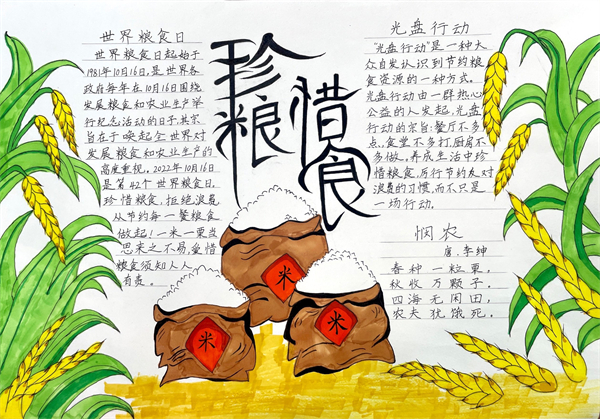 世界粮食日
世界粮食日起始于
1981年10月16日,是世界各
政府每年在10月16日围绕
发展粮食和农业生产举
行纪念活动的日子,其宗
旨在于唤起全世界对
发展粮食和农业生产的
高度重视。2022年10月16日
是第42个世界粮食日,
珍惜粮食,拒绝浪费
从节约每一餐粮食
做起!一米一粟当
思来之不易,爱惜
粮食须知人人
有责。
珍惜
粮食
光盘行动
"光盘行动"是一种大
众自发认识到节约粮
食资源的一种方式。
光盘行动由一群热心
公益的人发起,光盘
行动的宗旨:餐厅不多
点、食堂不多打,厨房不
多做。养成生活中珍
惜粮食,厉行节约反对
浪费的习惯,而不只是
一场行动。
悯农
唐.李绅
春种一粒粟,
秋收万颗子。
四海无闲田,
农夫犹饿死。
米
米
米